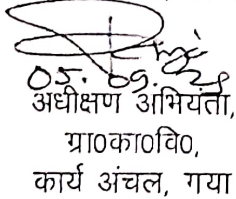 05.09.25
अधीक्षण अभियंता,
ग्रा०का०वि०,
कार्य अंचल, गया